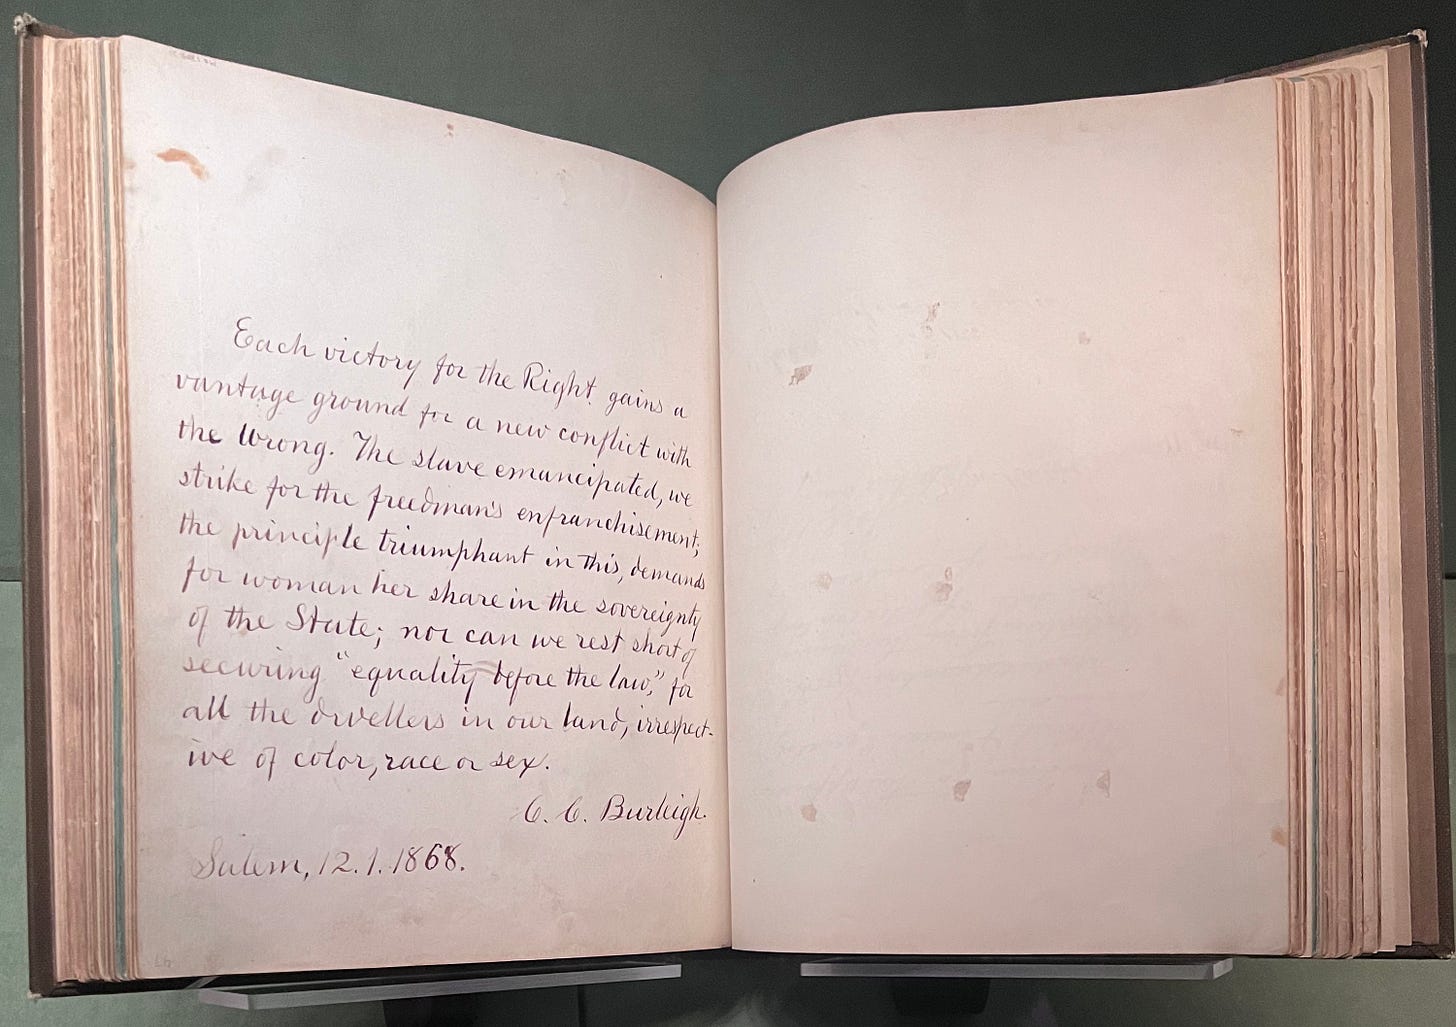 Each victory for the Right gains a
vantage ground for a new conflict with
the Wrong. The slave emancipated, we
strike for the freedman's enfranchisement;
the principle triumphant in this, demands
for woman her share in the sovereignty
of the State; nor can we rest short of
securing "equality before the law," for
all the dwellers in our land, irrespect-
ive of color, race or sex.
C. C. Burleigh.
Salem, 12.1.1868.